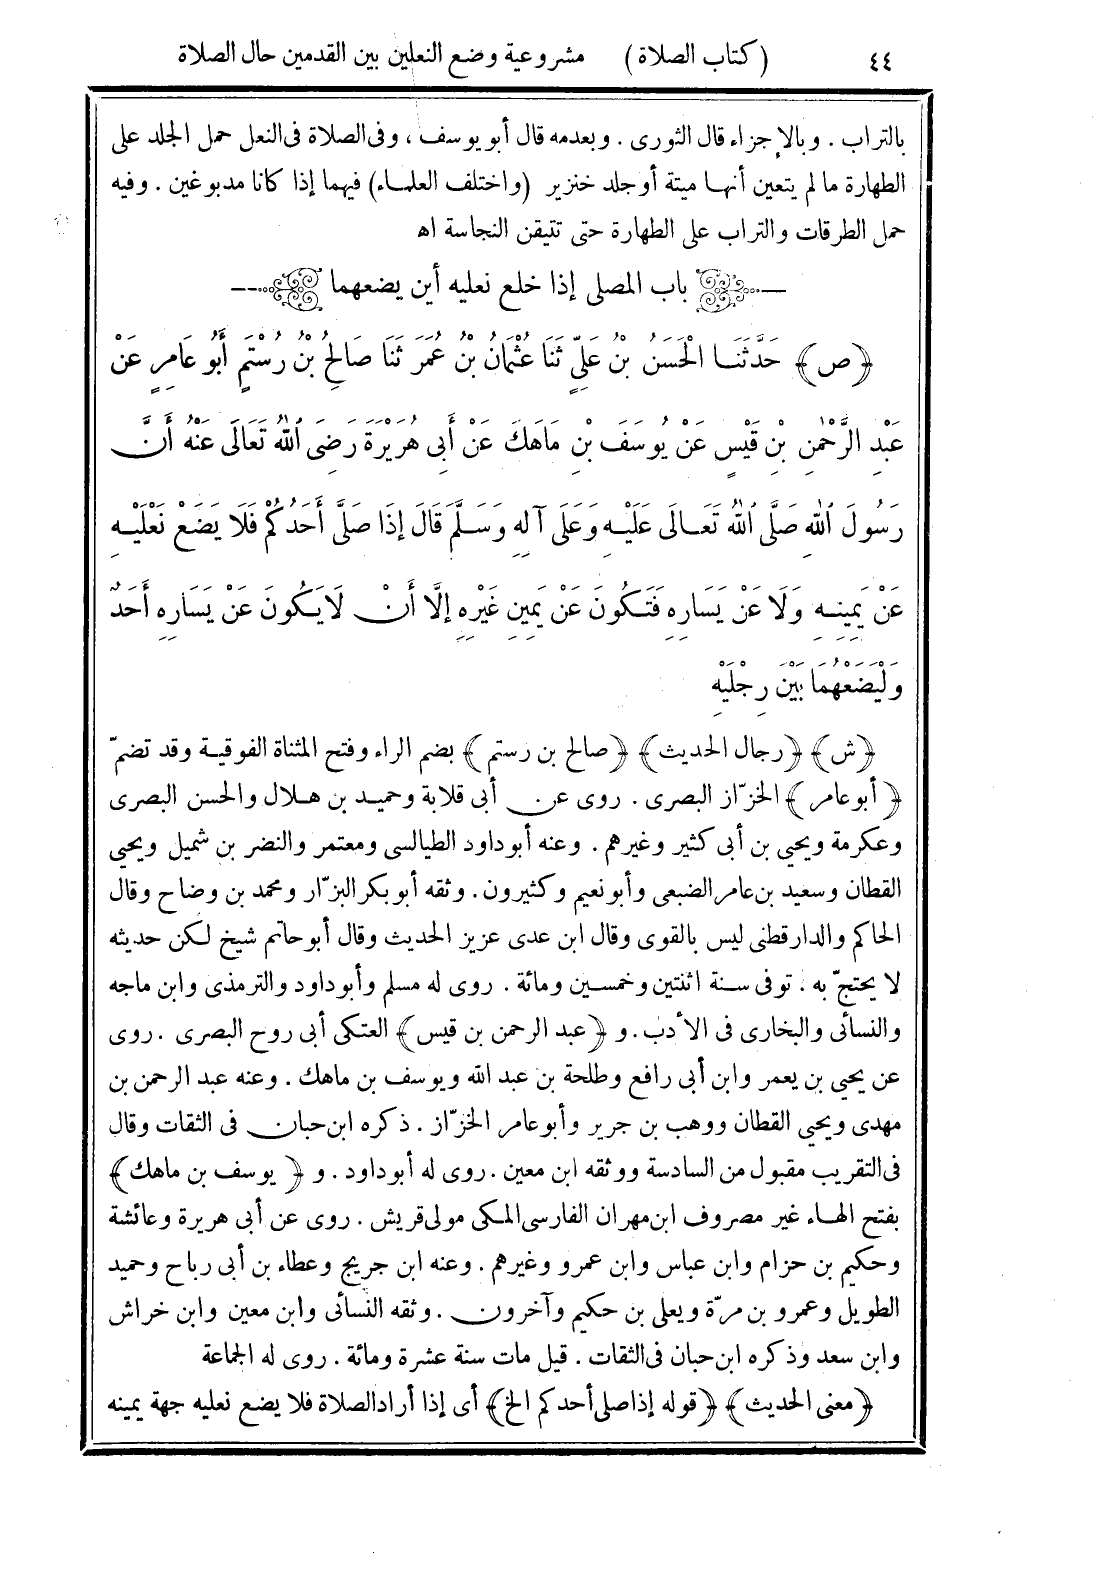 ٤٤ (كتاب الصلاة) مشروعية وضع النعلين بين القدمين حال الصلاة
بالتراب . وبالإجزاء قال الثورى . وبعدمه قال أبو يوسف ، وفى الصلاة فى النعل حمل الجلد على
الطهارة ما لم يتعين أنهـا ميتة أو جلد خنزير (واختلف العلمـاء) فيهما إذا كانا مدبوغين . وفيه
حمل الطرقات والتراب على الطهارة حتى تتيقن النجاسة اه
باب المصلى إذا خلع نعليه أين يضعهما
﴿ص﴾ حَدَّثَنَـا الْحَسَنُ بْنُ عَلِيٍّ ثَنَا عُثْمَانُ بْنُ عُمَرَ ثَنَا صَالِحُ بْنُ رُسْتَمٍ أَبُو عَامِرٍ عَنْ
عَبْدِ الرَّحْمٰنِ بْنِ قَيْسٍ عَنْ يُوسَفَ بْنِ مَاهَكَ عَنْ أَبِى هُرَيْرَةَ رَضِىَ اللهُ تَعَالَى عَنْهُ أَنَّ
رَسُولَ اللهِ صَلَّى اللهُ تَعَـالَى عَلَيْهِ وَعَلَى آلِهِ وَسَلَّمَ قَالَ إِذَا صَلَّى أَحَدُكُمْ فَلَا يَضَعْ نَعْلَيْـهِ
عَنْ يَمِينِـهِ وَلَا عَنْ يَسَارِهِ فَتَكُونَ عَنْ يَمِينِ غَيْرِهِ إِلَّا أَنْ لَا يَكُونَ عَنْ يَسَارِهِ أَحَدٌ
وَلْيَضَعْهُمَا بَيْنَ رِجْلَيْهِ
﴿ش﴾ ﴿رجال الحديث﴾ ﴿صالح بن رستم﴾ بضم الراء وفتح المثناة الفوقيـة وقد تضمّ
﴿أبو عامر﴾ الخزّاز البصرى . روى عن أبى قلابة وحميـد بن هـلال والحسن البصرى
وعكرمة ويحيى بن أبى كثير وغيرهم . وعنه أبو داود الطيالسى ومعتمر والنضر بن شميل ويحيى
القطان وسعيد بن عامر الضبعى وأبو نعيم وكثيرون . وثقه أبو بكر البزّار ومحمد بن وضاح وقال
الحاكم والدارقطنى ليس بالقوى وقال ابن عدى عزيز الحديث وقال أبو حاتم شيخ لـكن حديثه
لا يحتجّ به . توفى سـنة اثنتين وخمسـين ومائة . روى له مسلم وأبو داود والترمذى وابن ماجه
والنسائى والبخارى فى الأدب . و ﴿عبد الرحمن بن قيس﴾ العتكى أبى روح البصرى . روى
عن يحيى بن يعمر وابن أبى رافع وطلحة بن عبد الله ويوسف بن ماهك . وعنه عبد الرحمن بن
مهدى ويحيى القطان ووهب بن جرير وأبو عامر الخزّاز . ذكره ابن حبان فى الثقات وقال
فى التقريب مقبول من السادسة ووثقه ابن معين . روى له أبو داود . و ﴿يوسف بن ماهك﴾
بفتح الهـاء غير مصروف ابن مهران الفارسى المـكى مولى قريش . روى عن أبى هريرة وعائشة
وحكيم بن حزام وابن عباس وابن عمرو وغيرهم . وعنه ابن جريج وعطاء بن أبى رباح وحميد
الطويل وعمرو بن مرّة ويعلى بن حكيم وآخرون . وثقه النسائى وابن معين وابن خراش
وابن سعد وذكره ابن حبان فى الثقات . قيل مات سنة عشرة ومائة . روى له الجماعة
﴿معنى الحديث﴾ ﴿قوله إذا صلى أحدكم الخ﴾ أى إذا أراد الصلاة فلا يضع نعليه جهة يمينه